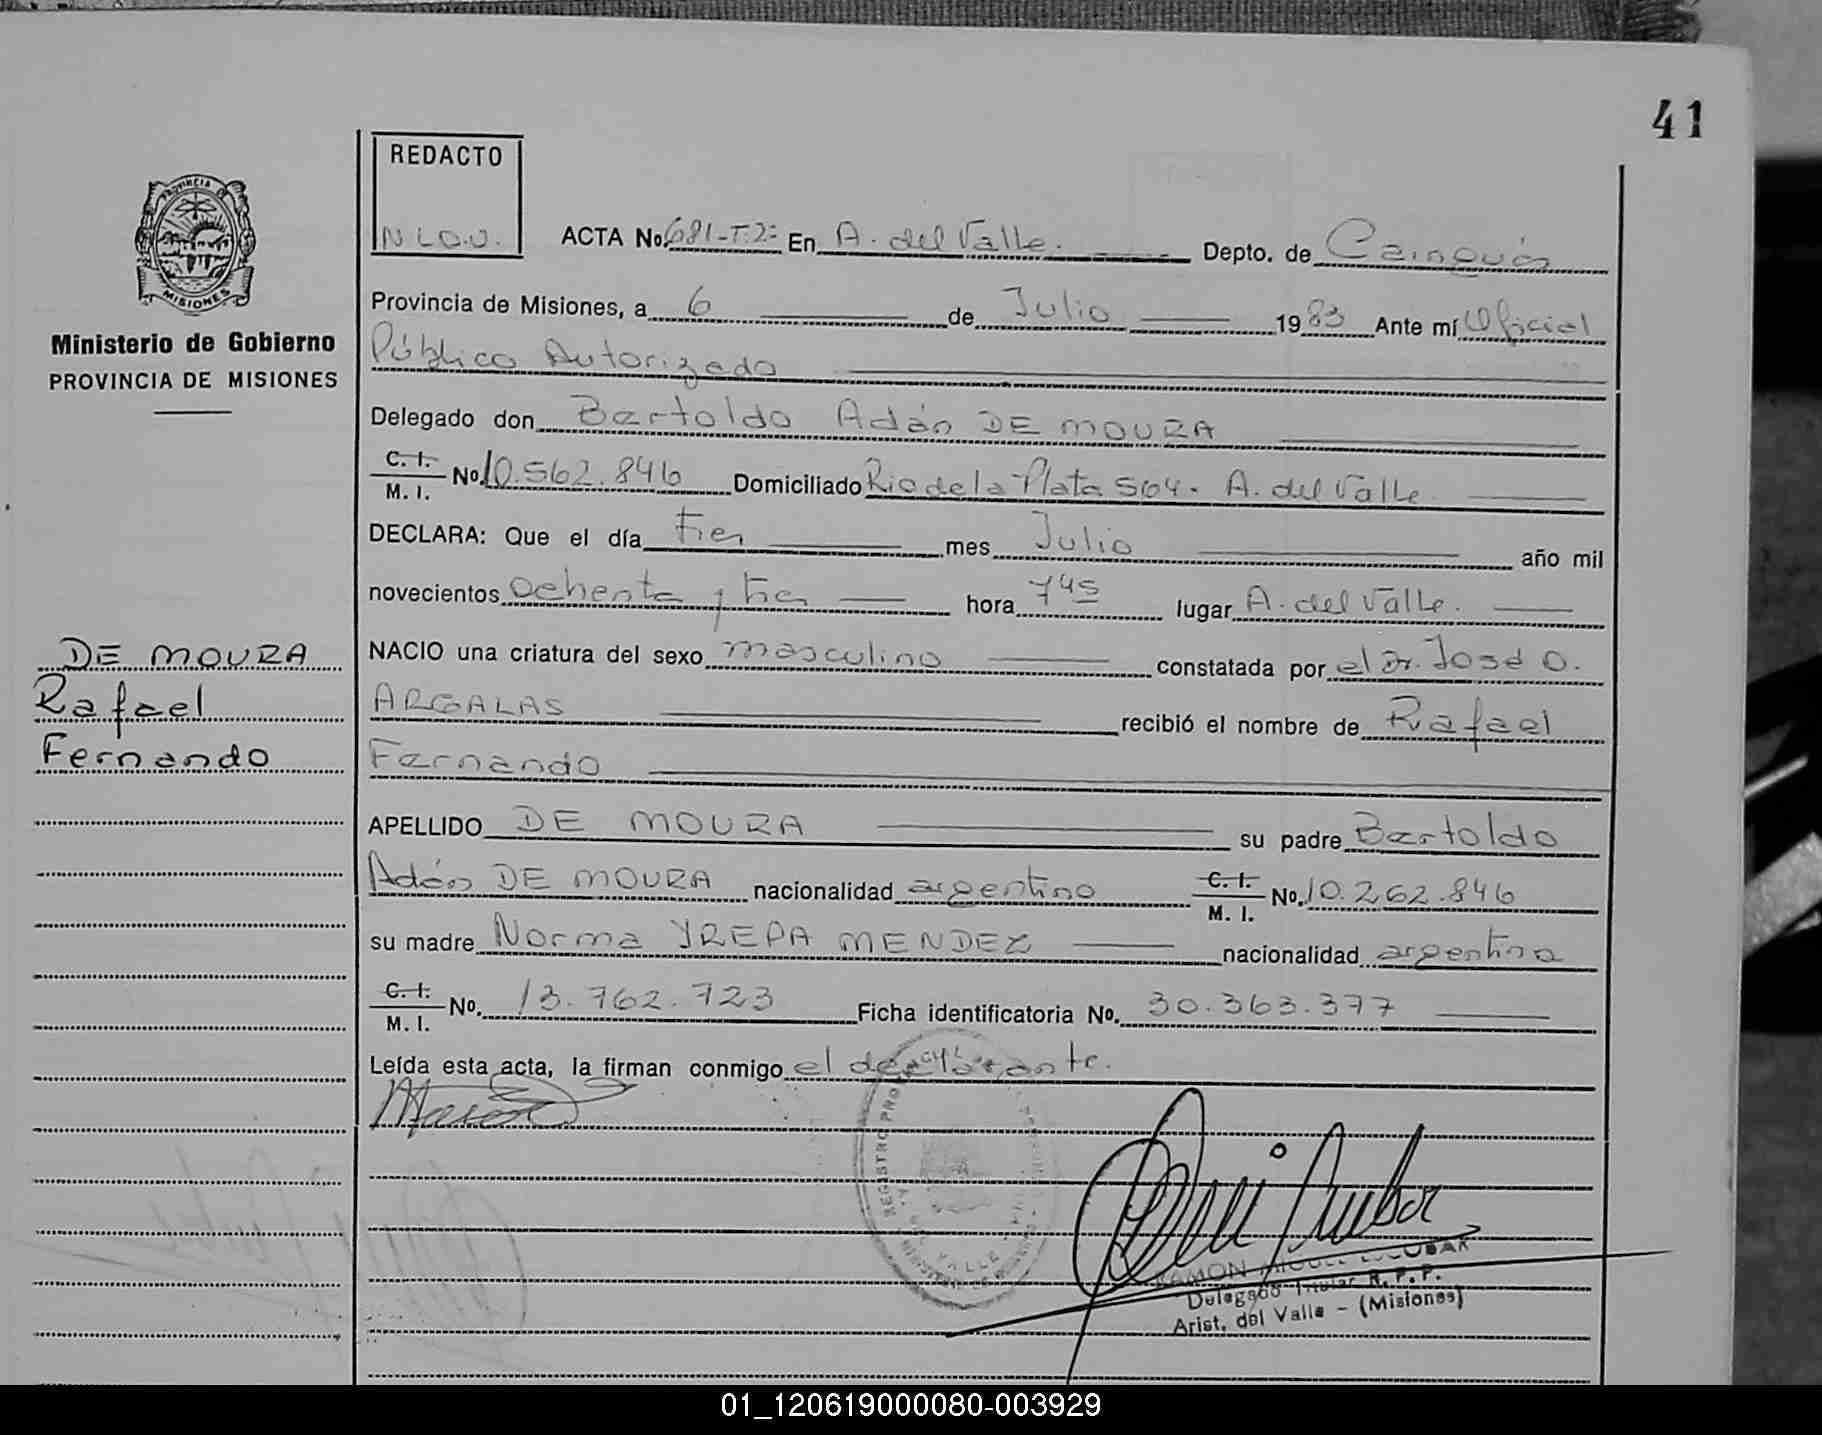 41
REDACTO
N.L.O.V.
PROVINCIA DE
MISIONES
Ministerio de Gobierno
PROVINCIA DE MISIONES
ACTA No. 681-T.2º En A. del Valle. Depto. de Cainguás
Provincia de Misiones, a 6 de Julio 1983 Ante mí Oficial
Público Autorizado
Delegado don Bertoldo Adán DE MOURA
C. I. M. I. No. 10.562.846 Domiciliado Rio de la Plata 504. A. del Valle.
DECLARA: Que el día tres mes Julio año mil
novecientos ochenta y tres hora 745 lugar A. del Valle.
NACIO una criatura del sexo masculino constatada por el Dr. José O.
ARGALAS recibió el nombre de Rafael
Fernando
APELLIDO DE MOURA su padre Bertoldo
Adán DE MOURA nacionalidad argentino C. I. M. I. No. 10.262.846
su madre Norma YREPA MENDEZ nacionalidad argentina
C. I. M. I. No. 13.762.723 Ficha identificatoria No. 30.363.377
Leída esta acta, la firman conmigo el declarante.
DE MOURA
Rafael
Fernando
REGISTRO PRO
VALLE
RAMON MIGUEL ESCOBAR
Delegado Titular R. P. P.
Arist. del Valle - (Misiones)
01_120619000080-003929